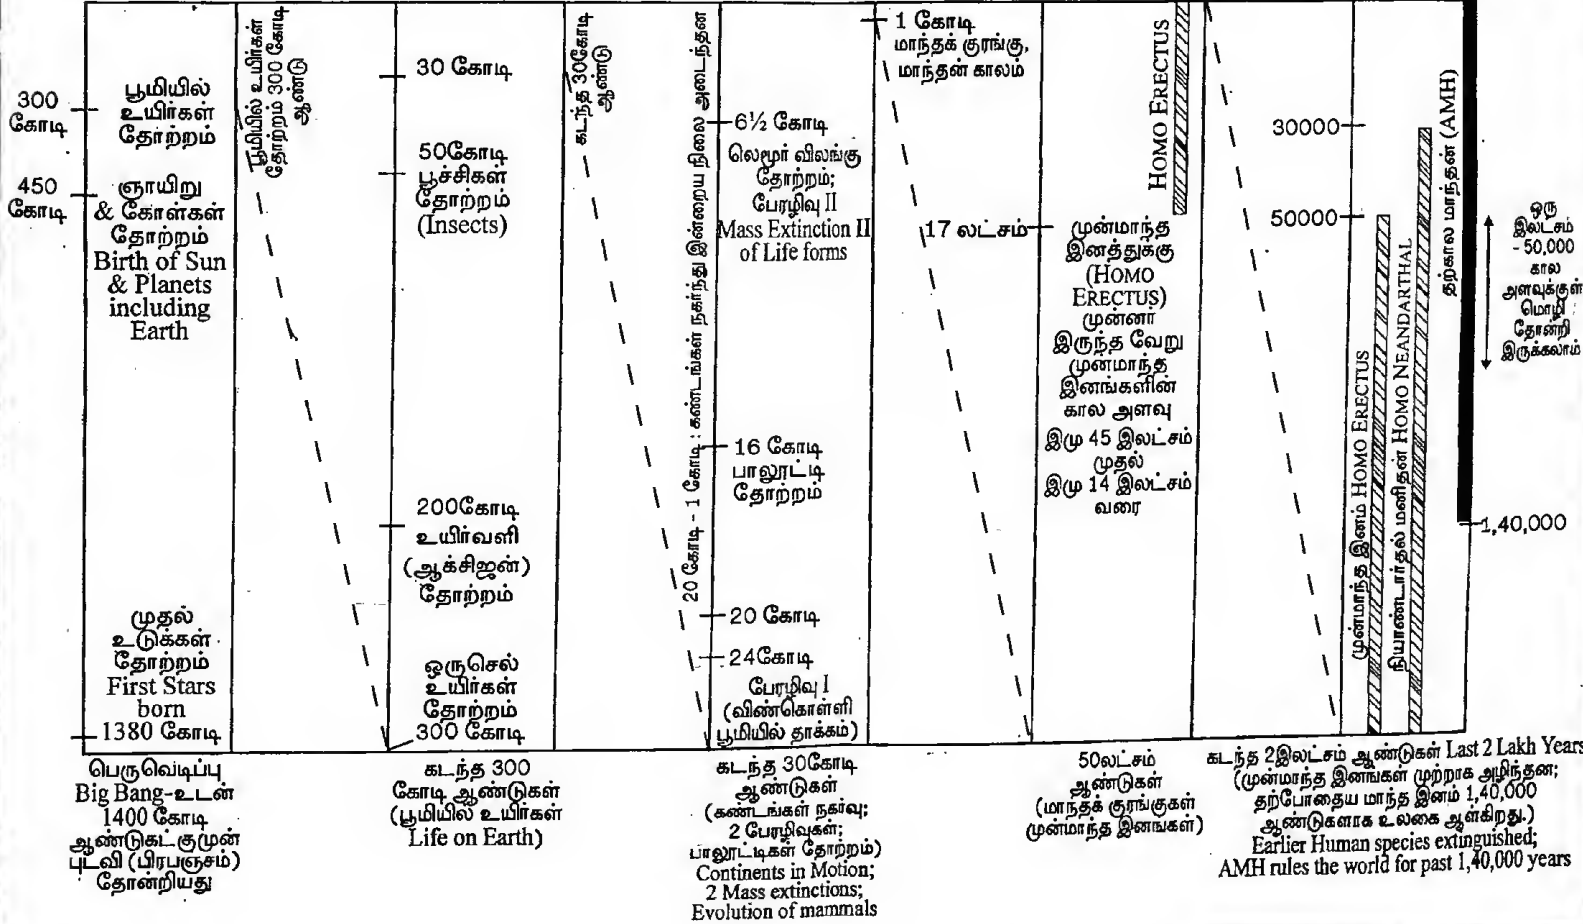 300
கோடி
450
கோடி
பூமியில்
உயிர்கள்
தோற்றம்
ஞாயிறு
& கோள்கள்
தோற்றம்
Birth of Sun
& Planets
including
Earth
முதல்
உடுக்கள்
தோற்றம்
First Stars
born
1380 கோடி
பெருவெடிப்பு
Big Bang-உடன்
1400 கோடி
ஆண்டுகட்குமுன்
புடவி (பிரபஞ்சம்)
தோன்றியது
பூமியில் உயிர்கள்
தோற்றம் 300 கோடி
ஆண்டு
30 கோடி
50கோடி
பூச்சிகள்
தோற்றம்
(Insects)
200கோடி
உயிர்வளி
(ஆக்சிஜன்)
தோற்றம்
ஒருசெல்
உயிர்கள்
தோற்றம்
300 கோடி
கடந்த 300
கோடி ஆண்டுகள்
(பூமியில் உயிர்கள்
Life on Earth)
கடந்த 30கோடி
ஆண்டு
20 கோடி - 1 கோடி : கண்டங்கள் நகர்ந்து இன்றைய நிலை அடைந்தன
6½ கோடி
லெமூர் விலங்கு
தோற்றம்;
பேரழிவு II
Mass Extinction II
of Life forms
16 கோடி
பாலூட்டி
தோற்றம்
20 கோடி
24கோடி
பேரழிவு I
(விண்கொள்ளி
பூமியில் தாக்கம்)
கடந்த 30கோடி
ஆண்டுகள்
(கண்டங்கள் நகர்வு;
2 பேரழிவுகள்;
பாலூட்டிகள் தோற்றம்)
Continents in Motion;
2 Mass extinctions;
Evolution of mammals
1 கோடி
மாந்தக் குரங்கு,
மாந்தன் காலம்
17 லட்சம்
HOMO ERECTUS
முன்மாந்த
இனத்துக்கு
(HOMO
ERECTUS)
முன்னர்
இருந்த வேறு
முன்மாந்த
இனங்களின்
கால அளவு
இமு 45 இலட்சம்
முதல்
இமு 14 இலட்சம்
வரை
50லட்சம்
ஆண்டுகள்
(மாந்தக் குரங்குகள்
முன்மாந்த இனங்கள்)
30000
50000
முன்மாந்த இனம் HOMO ERECTUS
நியாண்டார்தல் மனிதன் HOMO NEANDARTHAL
தற்கால மாந்தன் (AMH)
1,40,000
ஒரு
இலட்சம்
- 50,000
கால
அளவுக்குள்
மொழி
தோன்றி
இருக்கலாம்
கடந்த 2இலட்சம் ஆண்டுகள் Last 2 Lakh Years
(முன்மாந்த இனங்கள் முற்றாக அழிந்தன;
தற்போதைய மாந்த இனம் 1,40,000
ஆண்டுகளாக உலகை ஆள்கிறது.)
Earlier Human species extinguished;
AMH rules the world for past 1,40,000 years